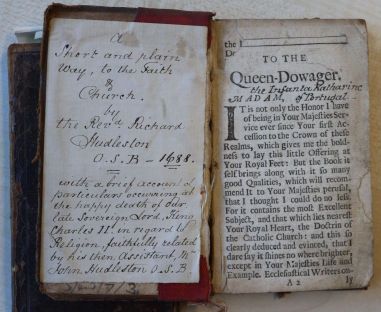 A
Short and plain
Way, to the Faith
&
Church.
by
the Revd Richard
Hudleston
O.S.B - 1688.
with a brief account of
particulars occurring at
the happy death of our
late Sovereign Lord, King
Charles IId. in regard to
Religion, faithfully related
by his then Assistant, Mr
John Hudleston O.S.B
the I
Dr
TO THE
Queen-Dowager.
the Infanta Katharine
MADAM, of Portugal
IT is not only the Honor I have
of being in Your Majesties Ser-
vice ever since Your first Ac-
cession to the Crown of these
Realms, which gives me the bold-
ness to lay this little Offering at
Your Royal Feet: But the Book it
self brings along with it so many
good Qualities, which will recom-
mend it to Your Majesties perusal,
that I thought I could do no less.
For it contains the most Excellent
Subject, and that which lies nearest
Your Royal Heart, the Doctrin of
the Catholic Church: and this so
clearly deduced and evinced, that I
dare say it shines no where brighter,
except in Your Majesties Life and
Example. Ecclesiastical Writers on-
A 2 ly